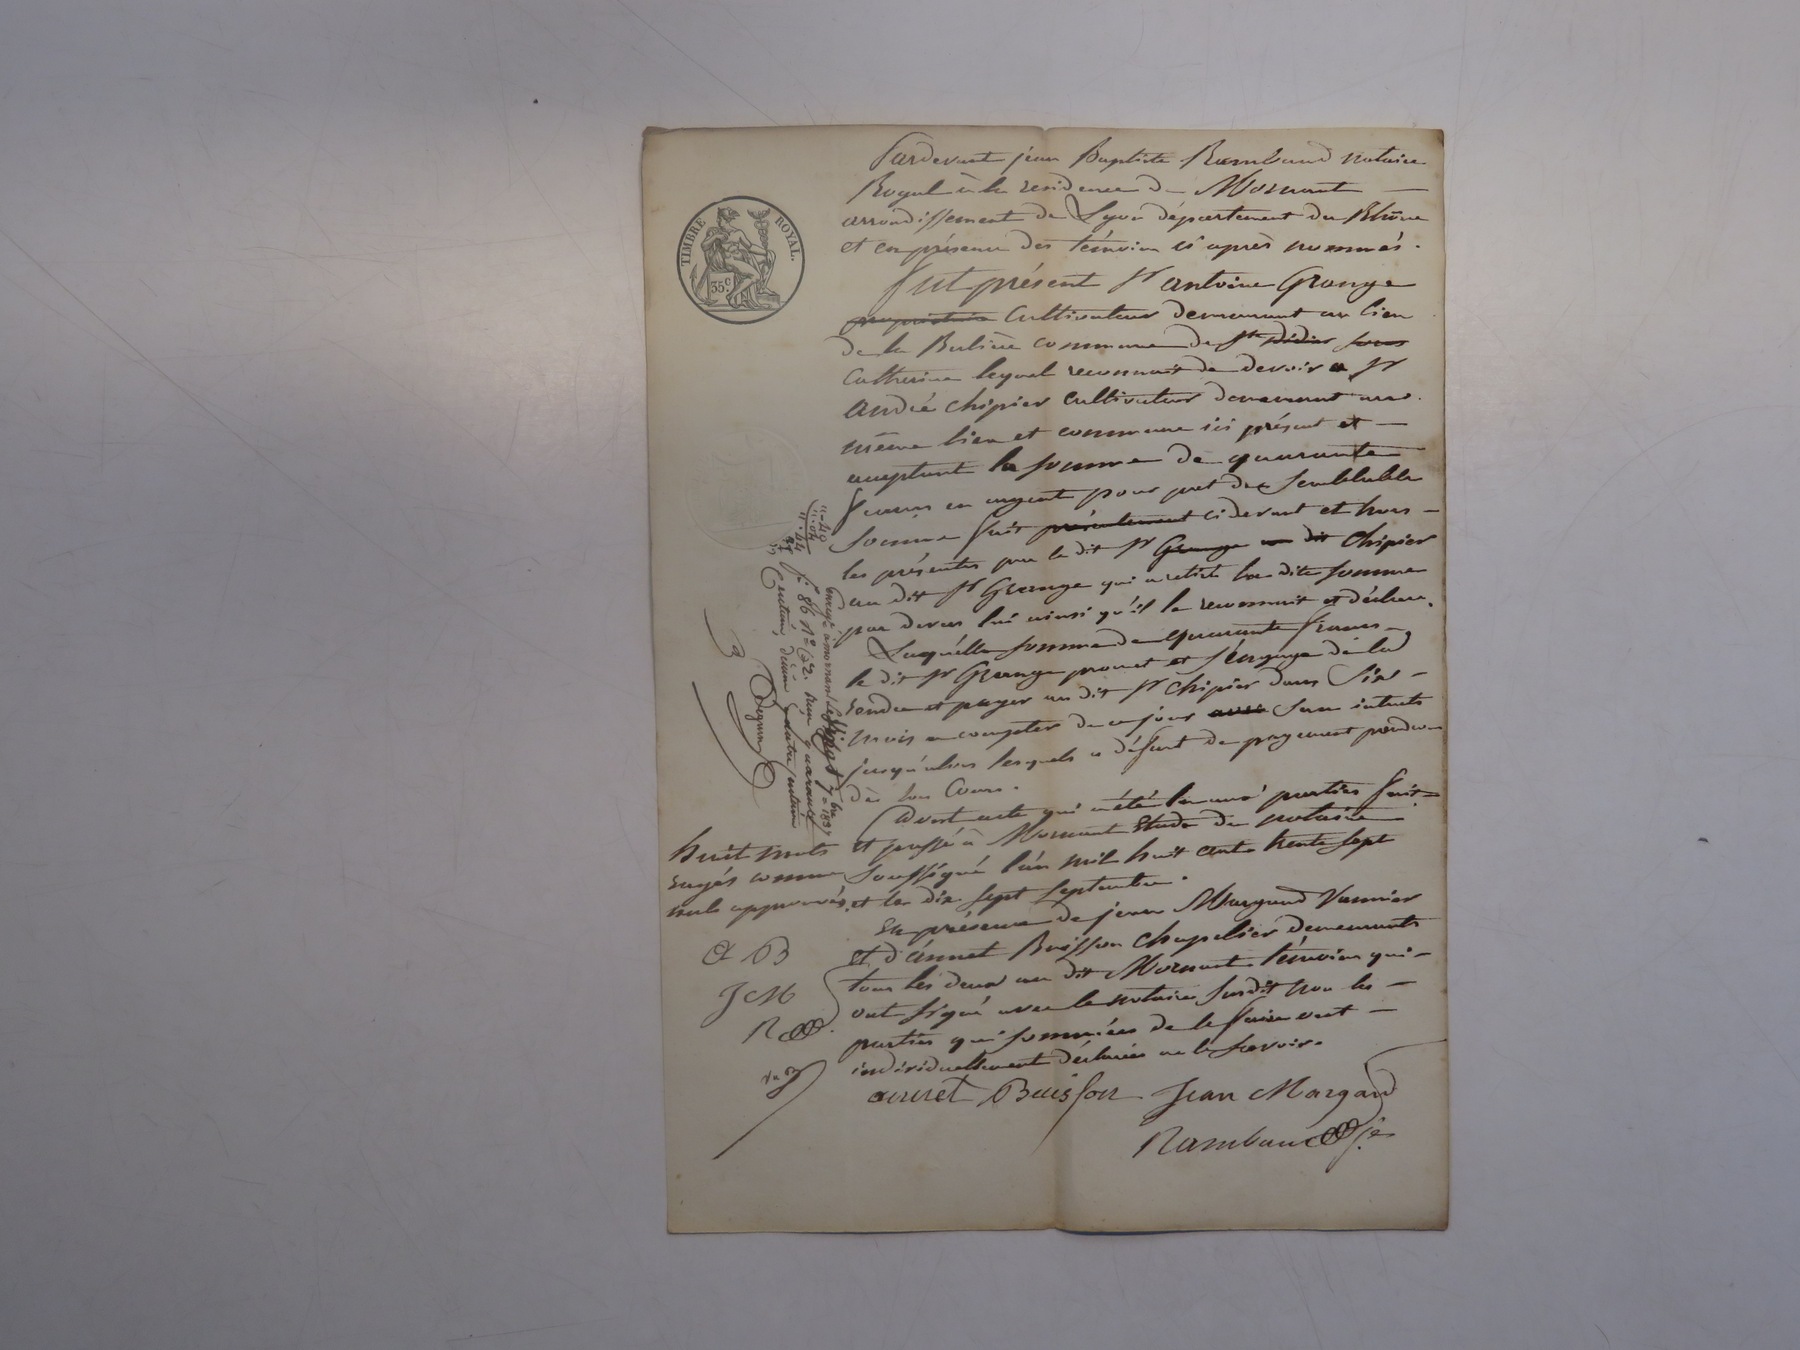 TIMBRE ROYAL.
35c
Pardevant jean Baptiste Rambaud notaire
Royal à la residence de Mornant
arrondissement de Lyon département du Rhône
et en présence des témoins ci après nommés.
fut présent Sr antoine Grange
propriétaire Cultivateur demeurant au lieu
de la Bulière commune de Ste didier sous
Catherine lequel reconnait de devoir a Sr
andré chipier cultivateur demeurant au
même lieu et commune ici présent et
acceptant la somme de quarante
francs en argent pour pret de semblable
somme fait présentement ci devant et hors
les présentes par le dit Sr Grange au dit Chipier
au dit Sr Grange qui a retiré la dite somme
par devers lui ainsi qu'il le reconnait et déclare.
Laquelle somme de quarante francs
le dit Sr Grange promet et s'engage de la
rendre et payer au dit Sr chipier dans Six
mois a compter de ce jour avec sans intérets
jusqu'alors lesquels a défaut de payement prendront
dès lors Cours.
Dont acte qui a été lu aux parties fait
et passé à Mornant Etude du notaire
soussigné l'an mil huit cents trente sept
et le dix sept septembre.
En présence de jean Margand Vannier
et d'annet Buisson chapelier demeurants
tous les deux au dit Mornant témoins qui
ont signé avec le notaire susdit non les
parties qui sommées de le faire ont
individuellement déclarées ne le savoir.
annet Buisson Jean Margand
Rambaud
huit mots
rayés comme
nuls approuvés.
a B
J M
R
"-40
"-04
"-44
enregé à mornant le vingt 7bre 1837
fo 86 Ro C 2. reçu quarante
Centimes, dixième quatre centimes